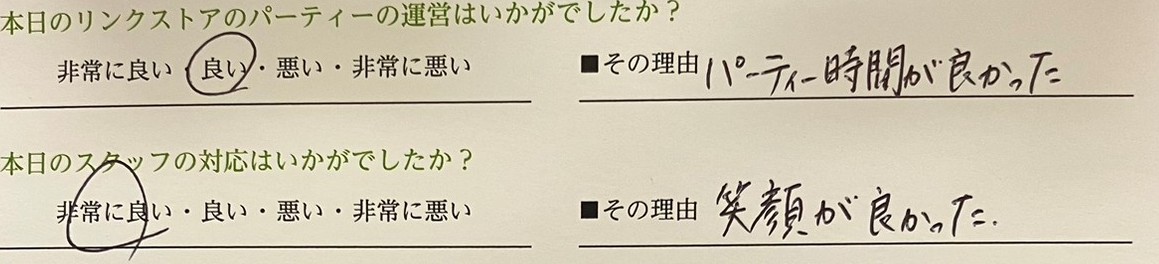 本日のリンクストアのパーティーの運営はいかがでしたか？
非常に良い・良い・悪い・非常に悪い ■その理由 パーティー時間が良かった
本日のスタッフの対応はいかがでしたか？
非常に良い・良い・悪い・非常に悪い ■その理由 笑顔が良かった.